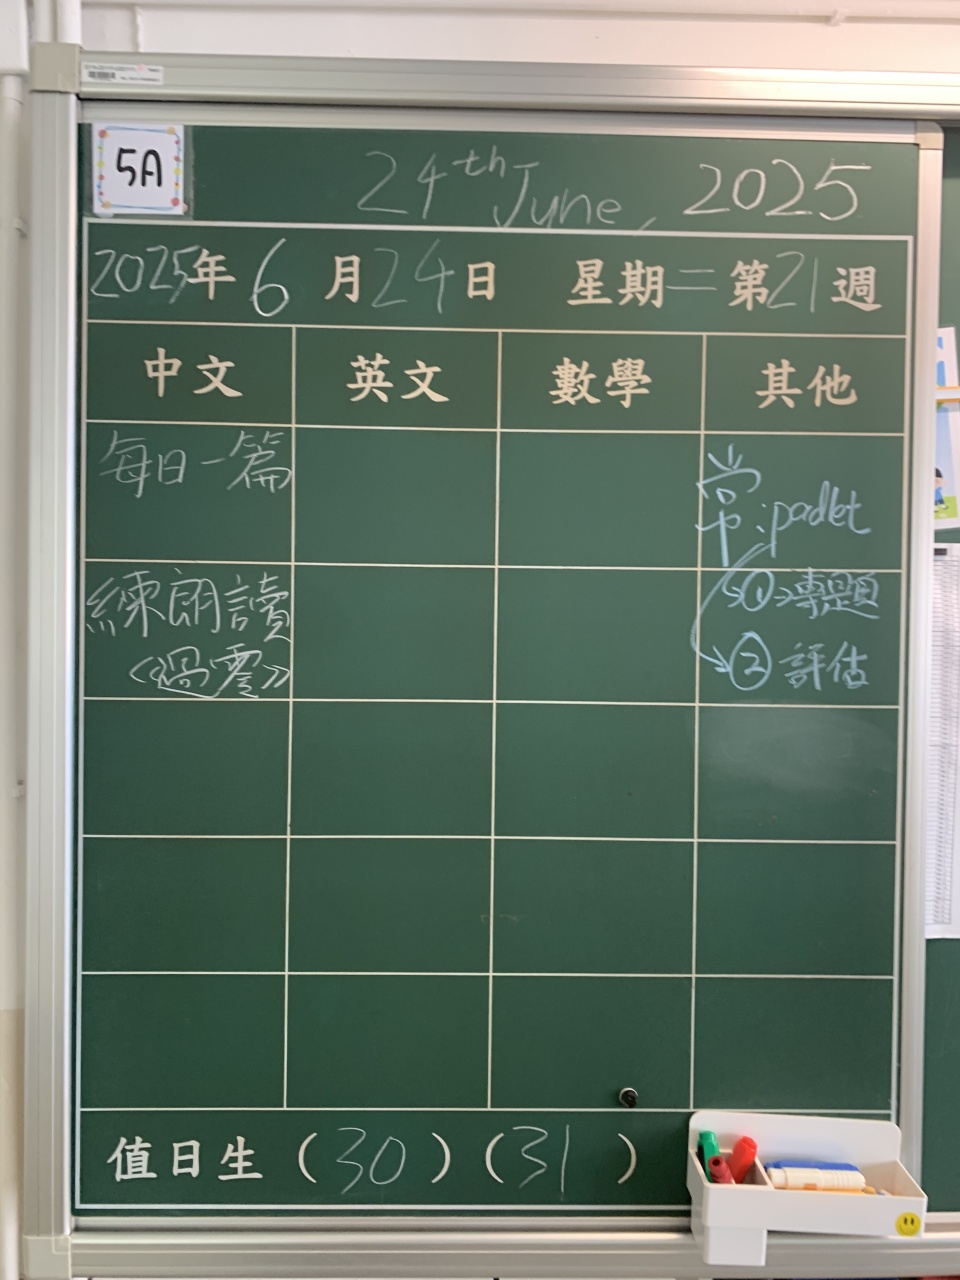 5A
24th June, 2025
2025年6月24日 星期二 第21週
中文 英文 數學 其他
每日一篇
常:padlet
練朗讀
①→專題
《過零》
② 評估
值日生 (30) (31)